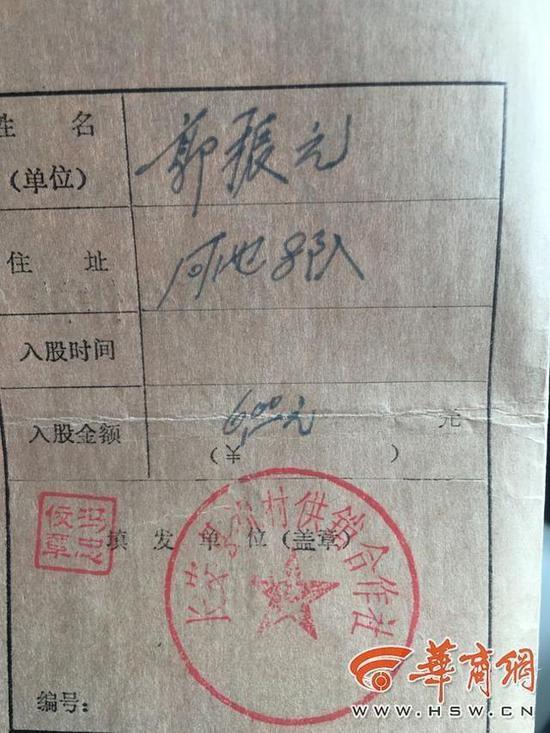 姓 名
(单位)
郭振元
住 址
河池8队
入股时间
入股金额
6.00元
元
(¥ )
村供销合作社
填 发 单 位 (盖章)
编号:
華商網
WWW.HSW.CN